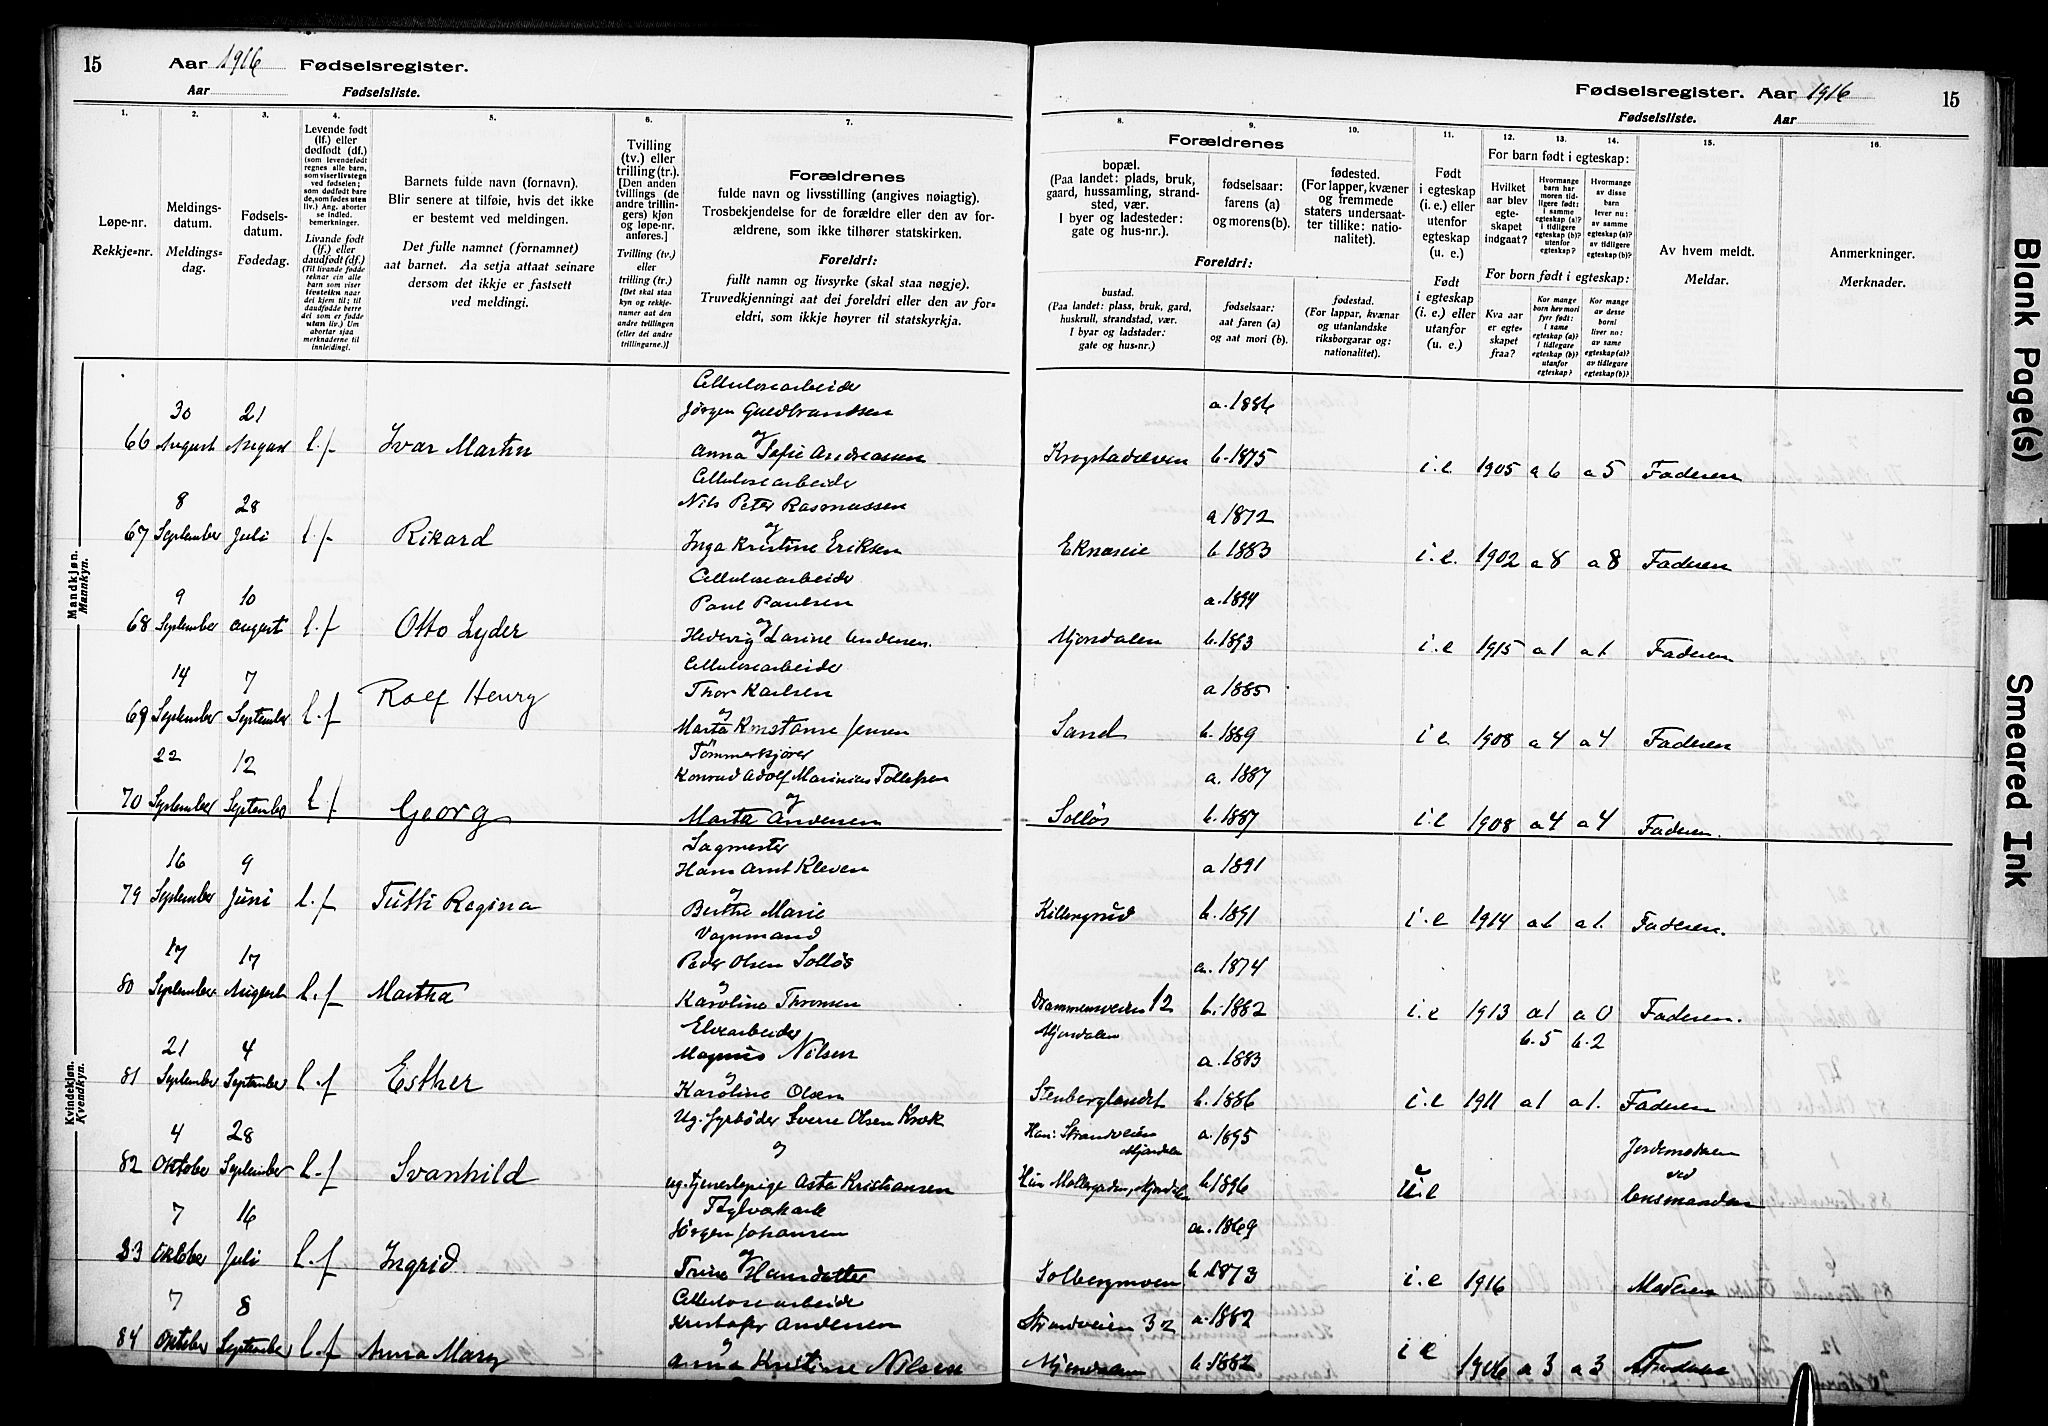 15
Aar 1916 Fødselsregister.
Aar Fødselsliste.
Fødselsregister. Aar 1916
15
Fødselsliste. Aar
1.
Løpe-nr.
Rekkje-nr.
2.
Meldings-
datum.
Meldings-
dag.
3.
Fødsels-
datum.
Fødedag.
4.
Levende født
(lf.) eller
dødfødt (df.)
(som levendefødt
regnes alle barn,
som viser livstegn
ved fødselen;
som dødfødt bare
de, som fødes uten
liv.) Ang. aborter
se indled.
bemerkninger.
Livande født
(lf.) eller
daudfødt (df.)
(Til livande fødde
reknar ein alle
born som viser
livsteikn naar
dei kjem til; til
daudfødde berre
dei som er fødde
utan liv.) Um
abortar sjaa
merknaderne til
innleidingi.
5.
Barnets fulde navn (fornavn).
Blir senere at tilføie, hvis det ikke
er bestemt ved meldingen.
Det fulle namnet (fornamnet)
aat barnet. Aa setja attaat seinare
dersom det ikkje er fastsett
ved meldingi.
6.
Tvilling
(tv.) eller
trilling (tr.).
[Den anden
tvillings (de
andre trillin-
gers) kjøn
og løpe-nr.
anføres.]
Tvilling (tv.)
eller
trilling (tr.)
[Det skal staa
kyn og rekkje-
numer aat den
andre tvillingen
(eller dei andre
trillingarne.)]
7.
Forældrenes
fulde navn og livsstilling (angives nøiagtig).
Trosbekjendelse for de forældre eller den av for-
ældrene, som ikke tilhører statskirken.
Foreldri:
fullt namn og livsyrke (skal staa nøgje).
Truvedkjenningi aat dei foreldri eller den av for-
eldri, som ikkje høyrer til statskyrkja.
Forældrenes
8.
bopæl.
(Paa landet: plads, bruk,
gaard, hussamling, strand-
sted, vær.
I byer og ladesteder:
gate og hus-nr.).
9.
fødselsaar:
farens (a)
og morens (b).
10.
fødested.
(For lapper, kvæner
og fremmede
staters undersaat-
ter tillike: natio-
nalitet).
Foreldri:
bustad.
(Paa landet: plass, bruk, gard,
huskrull, strandstad, vær.
I byar og ladstader:
gate og hus-nr.)
fødselsaar:
aat faren (a)
og aat mori (b).
fødestad.
(For lappar, kvænar
og utanlandske
riksborgarar og:
nationalitet).
11.
Født
i egteskap
(i. e.) eller
utenfor
egteskap
(u. e.)
Født
i egteskap
(i. e.) eller
utanfor
(u. e.)
12. 13. 14.
For barn født i egteskap:
Hvilket
aar blev
egte-
skapet
indgaat?
Hvormange
barn har
moren tid-
ligere født:
i samme
egteskap (a)?
i tidligere
egteskap (b)?
utenfor
egteskap?
Hvormange
av disse
barn
lever nu:
av samme
egteskap (a)?
av tidligere
egteskap (b)?
For born født i egteskap:
Kva aar
er egte-
skapet
fraa?
Kor mange
born hev mori
fyrr født:
i same
egteskap (a)?
i tidlegare
egteskap (b)?
utanfor
egteskap?
Kor mange
av desse
borni
liver no:
av same
egteskap (a)?
av tidlegare
egteskap (b)?
15.
Av hvem meldt.
Meldar.
16.
Anmerkninger.
Merknader.
Mandkjøn.
Mannkyn.
Cellulosearbeider
30 21 Jørgen Guldbrandsen a. 1886
66 August August l.f Ivar Martin og
Anna Sofie Andreassen Krogstadelven b. 1875 i.e 1905 a 6 a 5 Faderen
Cellulosearbeider
8 28 Nils Peter Rasmussen a 1872
67 September Juli l.f Rikard og
Inga Kristine Eriksen Eknæseie b. 1883 i.e. 1902 a 8 a 8 Faderen
Cellulosearbeider
9 10 Paul Paulsen a. 1894
68 September August l.f Otto Lyder og
Hedevig Larine Andersen. Mjøndalen b. 1893 i.e 1915 a 1 a 1. Faderen
Cellulosearbeider
14 7 Thor Karlsen a 1885
69 September September l.f Rolf Henry og
Marta Konstanse Jensen Sand b. 1889 i.e 1908 a 4 a 4 Faderen
Tømmerkjører
22 12 Konrad Adolf Marinius Tollefsen a. 1887
70 September September l.f Georg og
Marta Andersen Solløs b. 1887 i.e 1908 a 4 a 4 Faderen.
Kvindekjøn.
Kvendkyn.
Sagmester
16 9 Hans Arnt Kleven a 1891
79 September Juni l.f Tutti Regina og
Berthe Marie Killengrud b. 1891 i.e 1914 a 1 a 1. Faderen.
Vognmand
17 17 Peder Olsen Solløs a. 1874
80 September August l.f Martha og
Karoline Thronsen Drammensveien 12 b. 1882 i.e 1913 a 1 a 0 Faderen.
Elvearbeider Mjøndalen b. 5 b. 2
21 4 Magnus Nilsen a. 1883
81 September September l.f Esther og
Karoline Olsen Stenberglandet b. 1886 i.e 1911 a 1 a 1. Faderen
Ug. fyrbøder Sverre Olsen Krok Han: Strandveien a. 1895
4 28 og Mjøndalen Jordemoderen
82 Oktober September l.f Svanhild ved
ug. tjenestepige Asta Kristiansen Hun Møllergaden, Mjøndalen b. 1896 u.e lensmanden
Teglverksarb
7 16 Jørgen Johansen a. 1869
83 Oktober Juli l.f Ingrid og
Trine Hansdatter Solbergmoen b. 1873 i.e 1916 Moderen
Cellulosearbeider
7 8 Kristofer Andersen Strandveien 32 a. 1882
84 Oktober September l.f Anna Mary og
Anna Kristine Nilsen Mjøndalen b. 1882 i e 1906 a 3 a 3 Faderen
Blank Page(s)
Smeared Ink